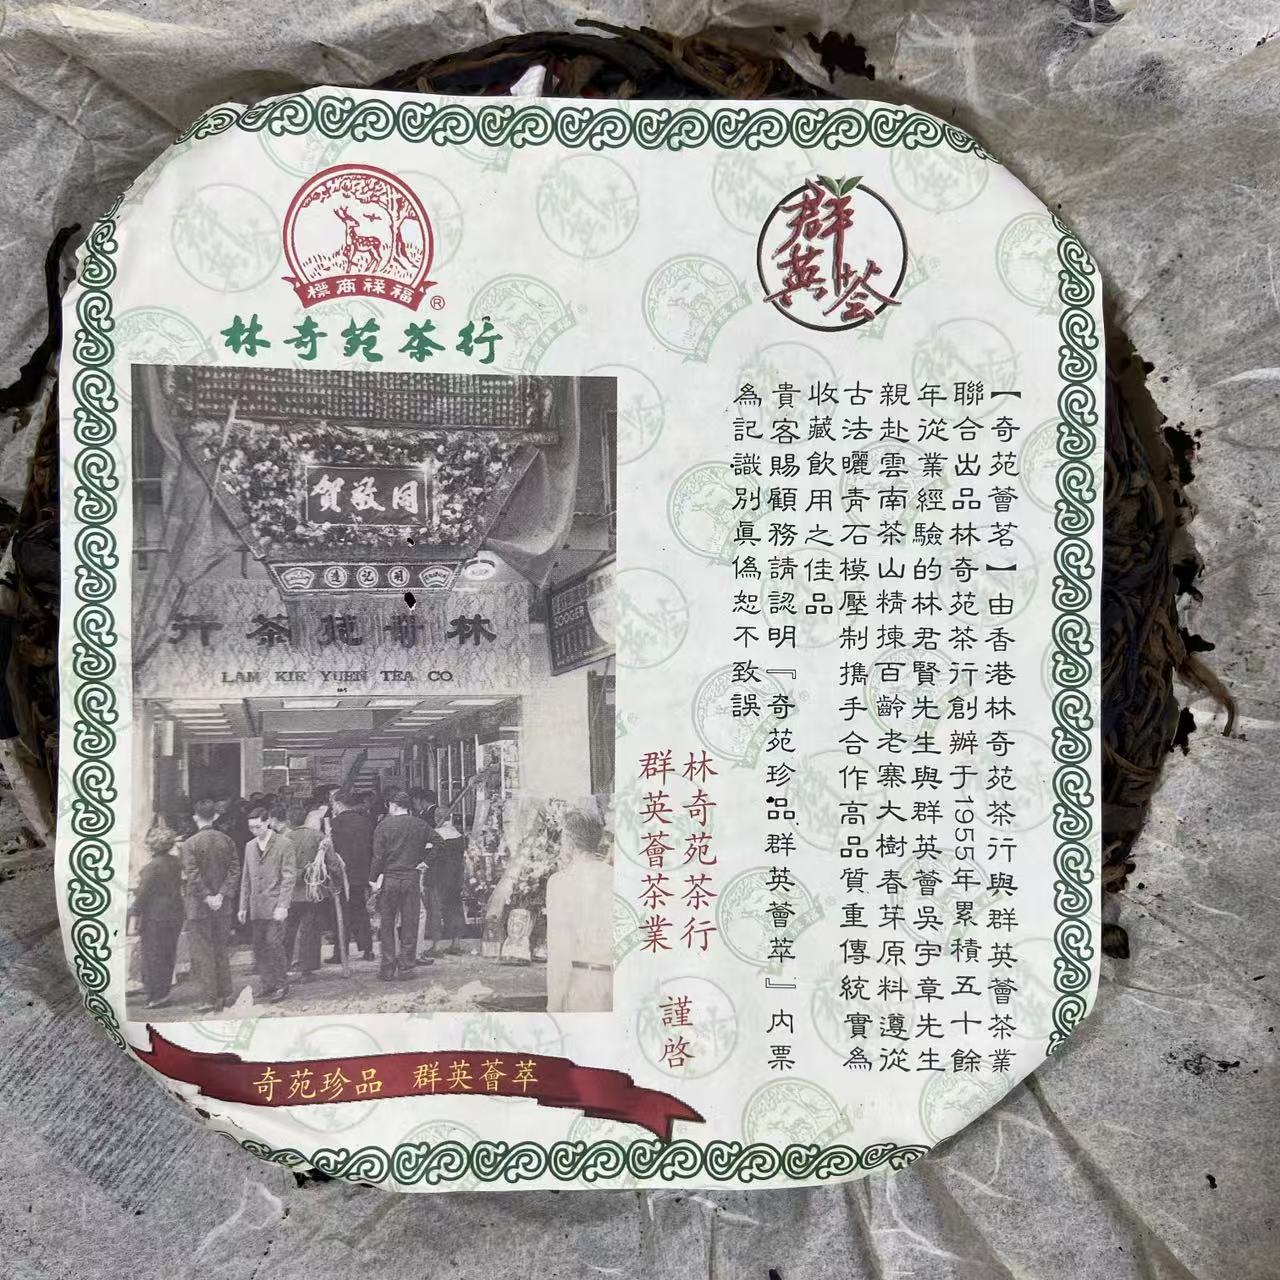 福祿商標
®
林奇苑茶行
群英荟
同敬賀
林奇苑茶行
LAM KIE YUEN TEA CO.
【奇苑薈茗】由香港林奇苑茶行與群英薈茶業
聯合出品林奇苑茶行創辦于1955年累積五十餘
年從業經驗的林君賢先生與群英薈吳宇章先生
親赴雲南茶山精揀百齡老寨大樹春芽原料遵從
古法曬青石模壓制攜手合作高品質重傳統實為
收藏飲用之佳品
貴客賜顧務請認明『奇苑珍品群英薈萃』內票
為記識別真偽恕不致誤
林奇苑茶行
群英薈茶業
謹啓
奇苑珍品 群英薈萃